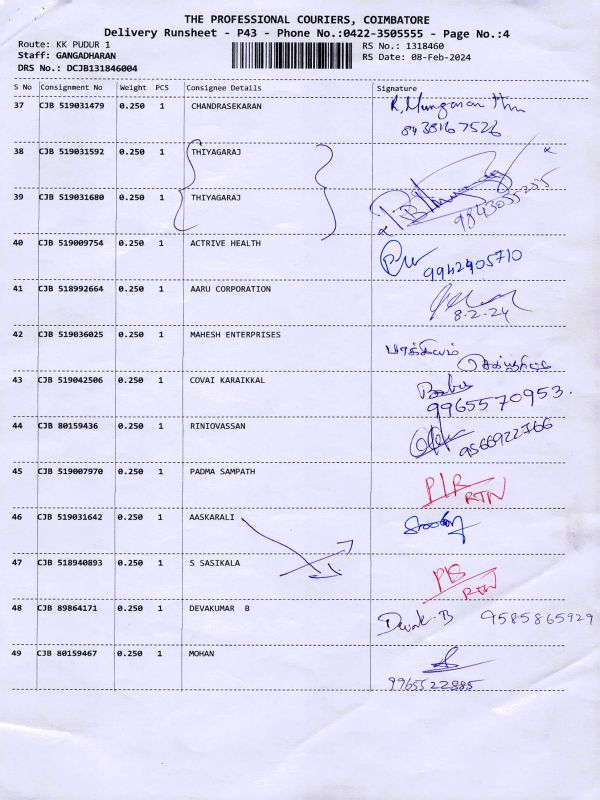 THE PROFESSIONAL COURIERS, COIMBATORE
Delivery Runsheet - P43 - Phone No.:0422-3505555 - Page No.:4
Route: KK PUDUR 1 RS No.: 1318460
Staff: GANGADHARAN RS Date: 08-Feb-2024
DRS No.: DCJB131846004
S No Consignment No Weight PCS Consignee Details Signature
37 CJB 519031479 0.250 1 CHANDRASEKARAN
38 CJB 519031592 0.250 1 THIYAGARAJ
39 CJB 519031680 0.250 1 THIYAGARAJ
40 CJB 519009754 0.250 1 ACTRIVE HEALTH
9942405710
41 CJB 518992664 0.250 1 AARU CORPORATION
8.2.24
42 CJB 519036025 0.250 1 MAHESH ENTERPRISES
43 CJB 519042506 0.250 1 COVAI KARAIKKAL
9965570953.
44 CJB 80159436 0.250 1 RINIOVASSAN
9566922766
45 CJB 519007970 0.250 1 PADMA SAMPATH
RTN
46 CJB 519031642 0.250 1 AASKARALI
47 CJB 518940893 0.250 1 S SASIKALA
RTN
48 CJB 89864171 0.250 1 DEVAKUMAR B
9585865929
49 CJB 80159467 0.250 1 MOHAN